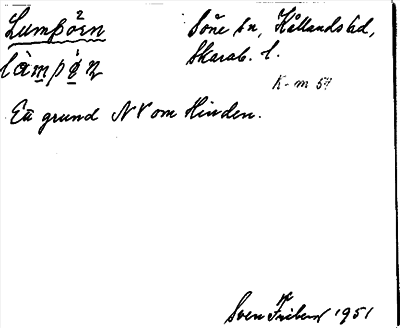 Lumpöen Söne sn, Kållands hd,
Skarab. l.
K-m 54
Ett grund NV om Hinden.
Sven Friberg 1951